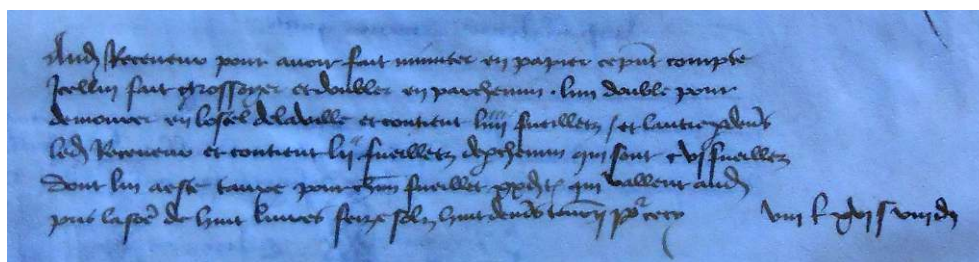 Aud Receveur pour avoir fait minuter en papier ce pnt compte
Icellui fait grossoyer et doubler en parchemin . lun double pour
demourer en lostel de la ville et contient liiii fueilletz / et lautre pdevs
led Receveur et contient lii fueilletz de pchemin qui sont cvi fueilletz
dont lui a este tauxe pour chun fueillet xx d t qui vallent aud
pris la soe de huit livres seize solz huit denrs tourn pr cecy viii l xvi s viii d